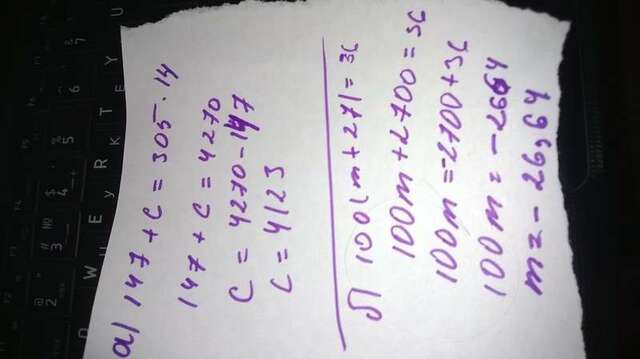 а) 147 + c = 305 · 14
147 + c = 4270
c = 4270 - 147
c = 4123
б) 100(m + 27) = 36
100m + 2700 = 36
100m = -2700 + 36
100m = -2664
m = -26,64